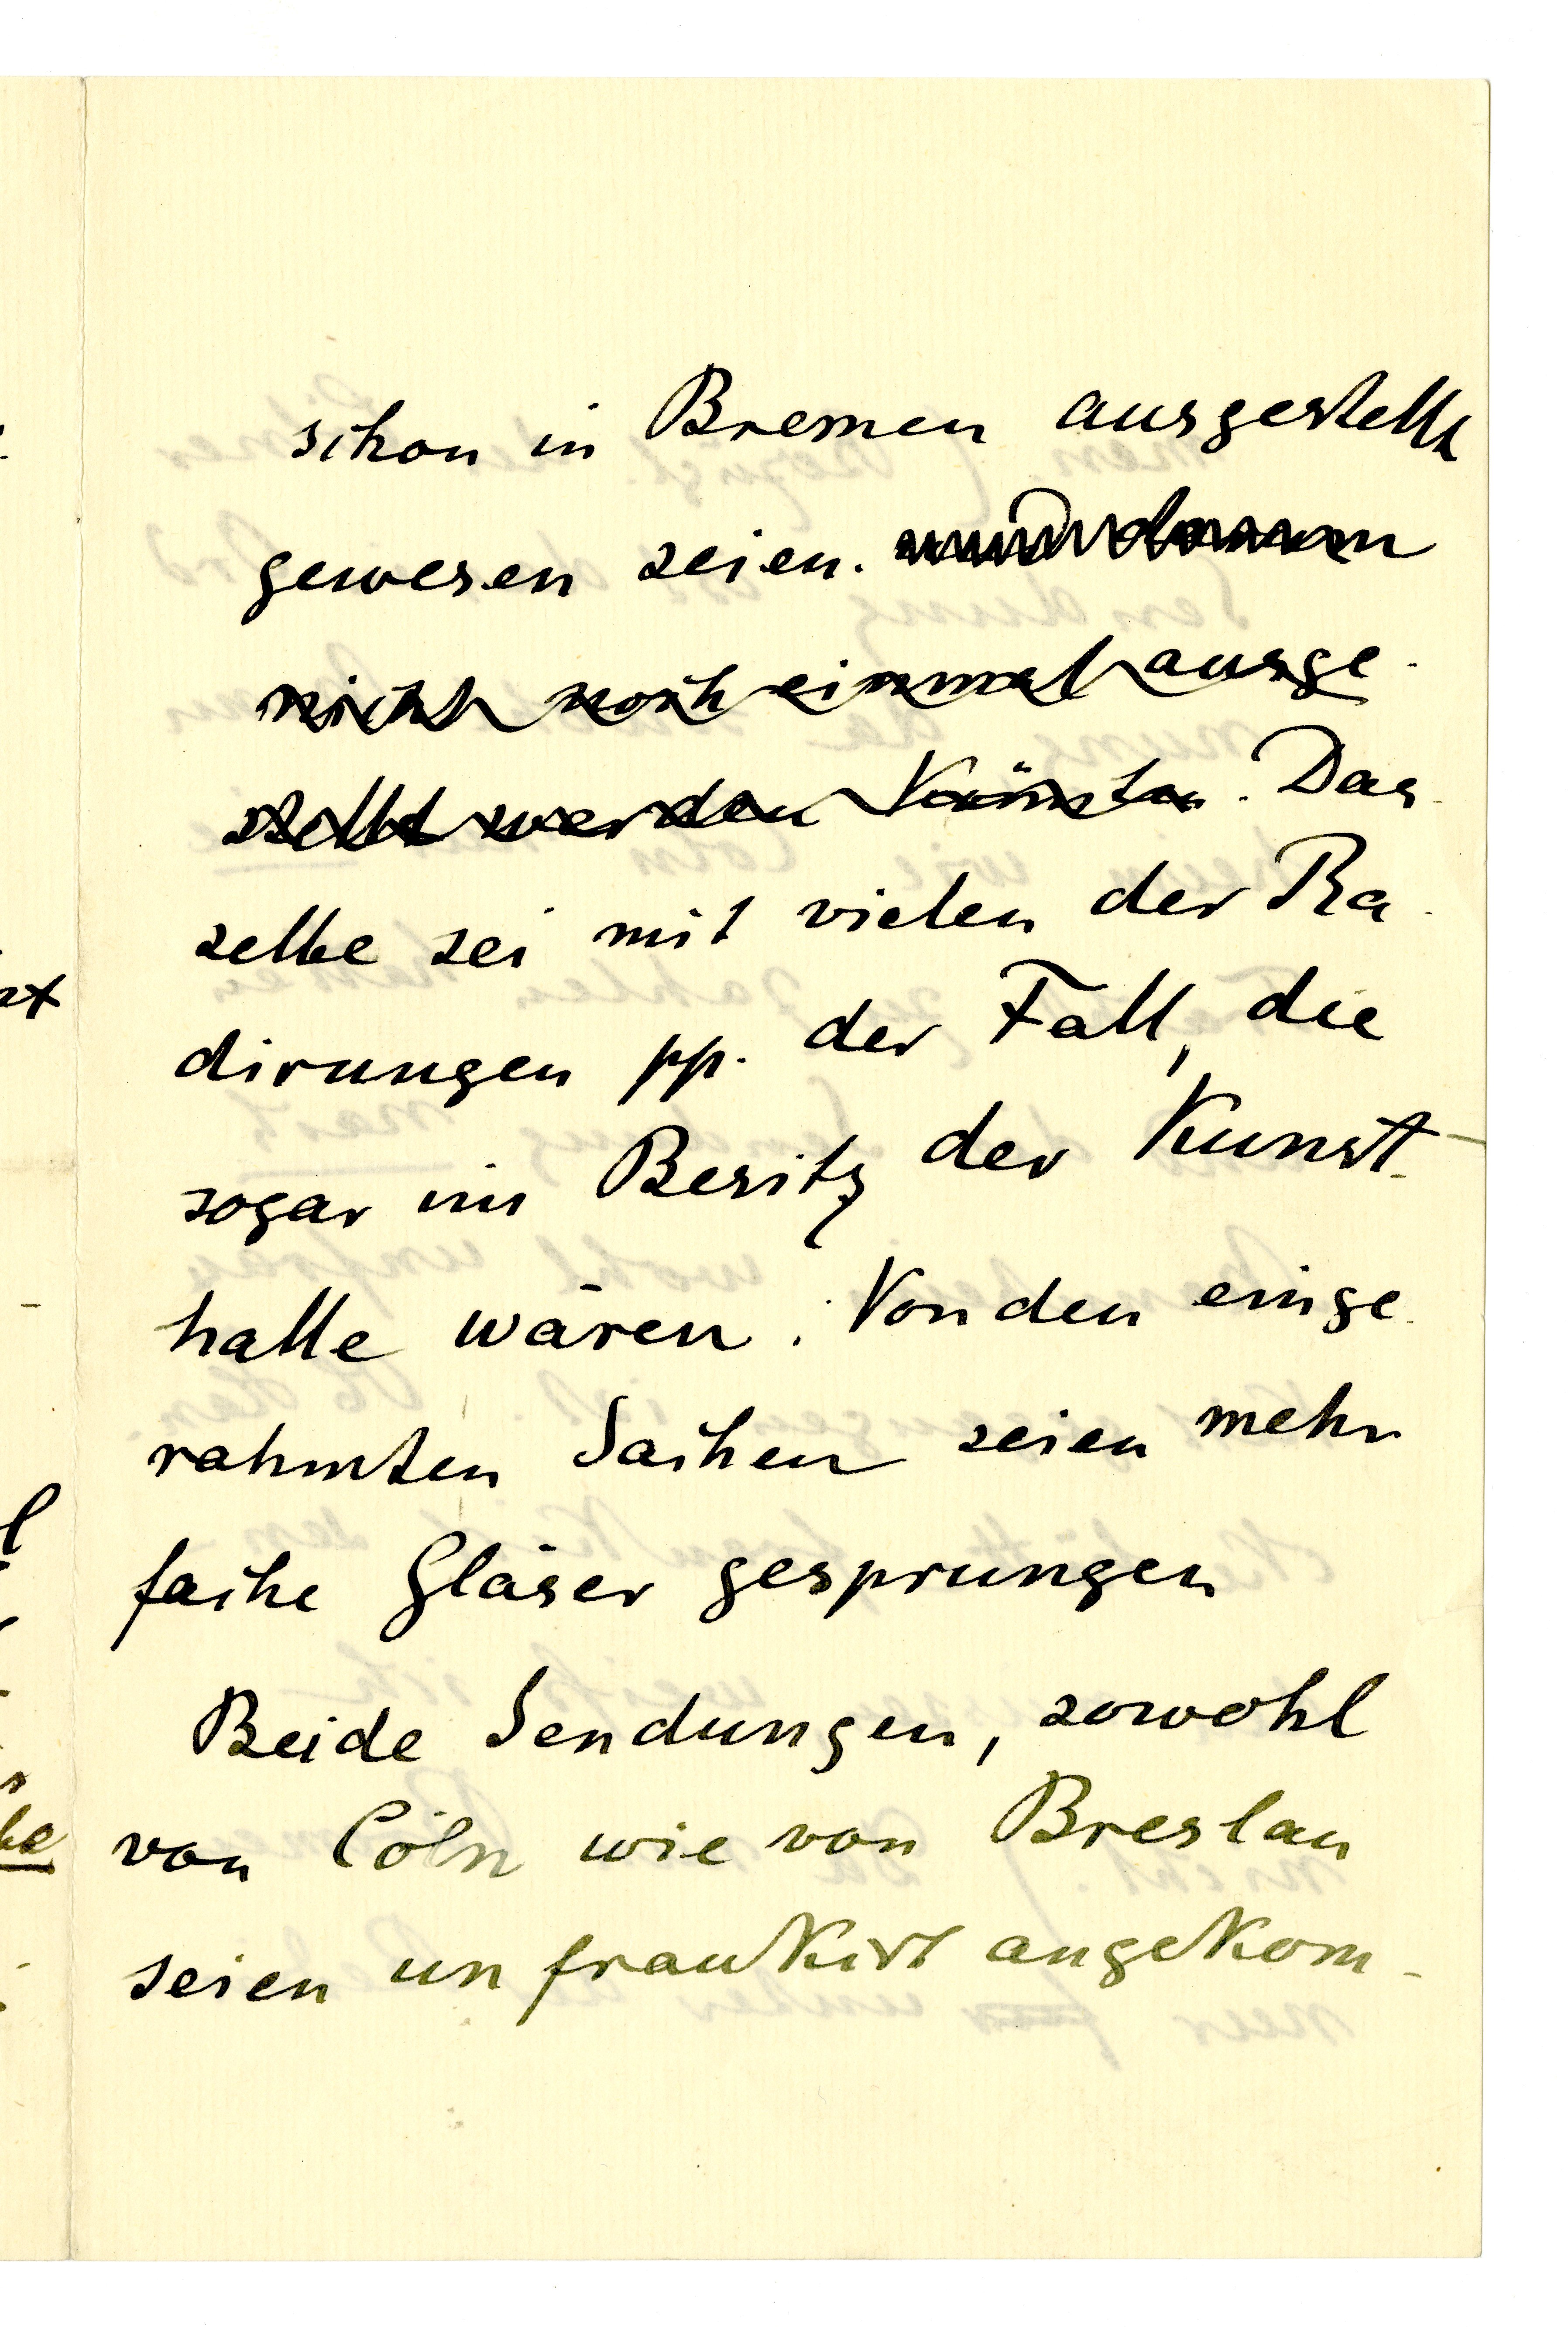 schon in Bremen ausgestellt
gewesen seien. und darum
nicht noch einmal ausge-
stellt werden könnten. Das-
selbe sei mit vielen der Ra-
dirungen pp. der Fall, die
sogar im Besitz der Kunst-
halle wären. Von den einge-
rahmten Sachen seien mehr
fache Gläser gesprungen
Beide Sendungen, sowohl
von Cöln wie von Breslau
seien unfrankirt angekom-